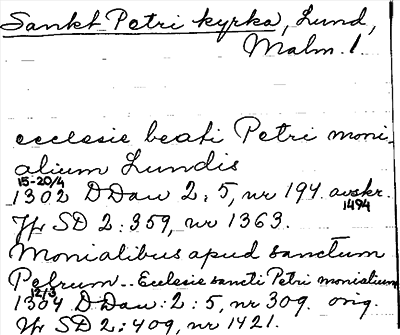 Sankt Petri kyrka, Lund,
Malm. 1.
ecclesie beati Petri moni-
alium Lundis
15-20/4
1302 DDan 2:5, nr 194. avskr.
1494
Jfr SD 2:359, nr 1363.
Monialibus apud sanctum
Petrum.. Ecclesie sancti Petri monialium
12/3
1304 DDan: 2:5, nr 309. orig.
Jfr SD 2:409, nr 1421.